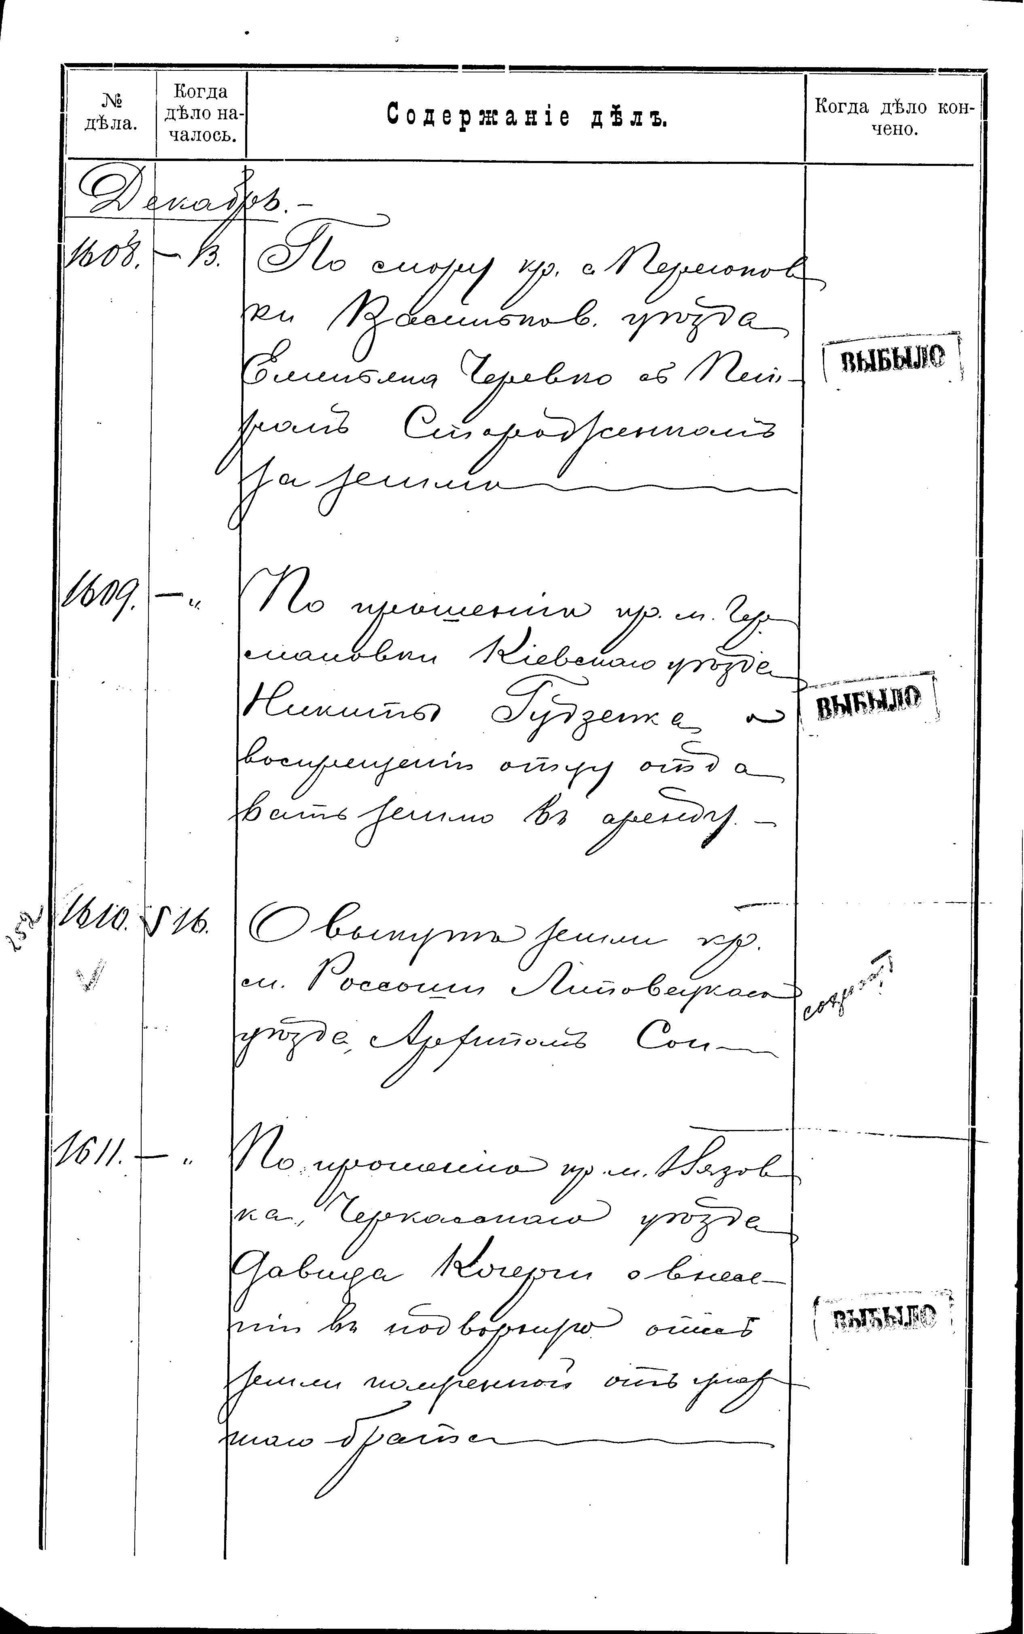 №
дѣла.
Когда
дѣло на-
чалось.
Содержаніе дѣлъ.
Когда дѣло кон-
чено.
Декабрь.—
1608. — 13. По спору кр. с. Перегонов
ки Васильков. уѣзда
Емельяна Черевко съ Пет-
ромъ Стародженкомъ
за землю
ВЫБЫЛО
1609. — " По прошенію кр. м. Гер
мановки Кіевскаго уѣзда
Никиты Гудзенка о
воспрещеніи отцу отда
вать землю въ аренду. —
ВЫБЫЛО
252
1610. 16. О выкупѣ земли кр.
м. Россоши Липовецкаго
уѣзда, Архипомъ Сом
1611. — " По прошенію кр. м. Вязов
ка, Черкасскаго уѣзда
Давида Кочерги о внесе-
ніи въ подворную опись
земли
шаго брата
ВЫБЫЛО